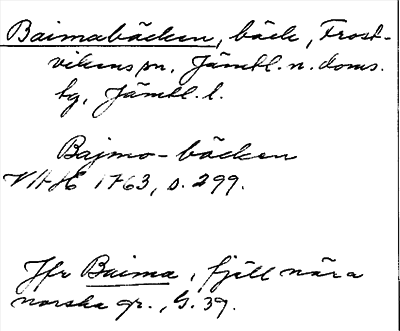 Baimabäcken, bäck, Frost-
vikens sn, Jämtl. n. doms.
tg, Jämtl. l.
Bajmo-bäcken
VAH 1763, s. 299.
Jfr Baima, fjäll nära
norska gr., G. 39.